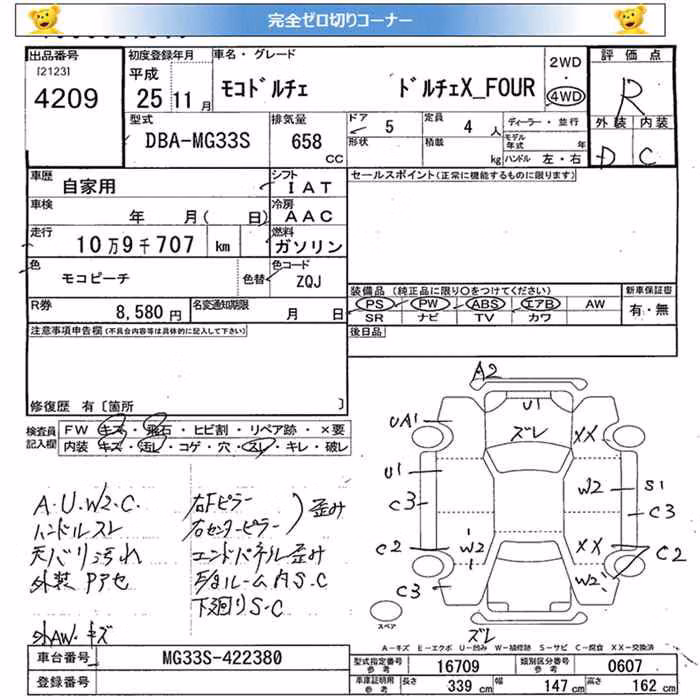 完全ゼロ切りコーナー
出品番号 初度登録年月 車名・グレード 2WD 評価点
[2123] 平成 モコドルチェ ドルチェX_FOUR ・ R
4209 25年 11月 4WD 外装 内装
型式 排気量 ドア 定員 ディーラー・並行 D C
DBA-MG33S 658 CC 5 4人 モデル年式 年
形状 積載 kg ハンドル 左・右
車歴 自家用 シフト IAT セールスポイント(正常に機能するものに限ります)
車検 年 月( 日) 冷房 AAC
走行 10万9千707 km 燃料 ガソリン
色 モコピーチ 色替 色コード ZQJ
装備品 (純正品に限り〇をつけてください) 新車保証書
R券 8,580円 名変通知期限 月 日 PS PW ABS エアB AW 有・無
SR ナビ TV カワ
注意事項申告欄(不具合内容等は具体的に記入して下さい) 後日品
修復歴 有 〔箇所 〕
検査員 FW キズ・飛石・ヒビ割・リペア跡・×要
記入欄 内装 キズ・汚レ・コゲ・穴・スレ・キレ・破レ
A2
U1
UA1 ズレ XX
U1 W2 S1
C3 C3
C2 W2 XX C2
C3 W2
ズレ
スペア
A・U・W2・C. 右Fピラー
ハンドルスレ 右センターピラー 歪み
天バリ汚れ エンドパネル歪み
外装 Pアセ ルーム内S・C
下廻りS・C
外AW・キズ
A-キズ E-エクボ U-凹み W-補修跡 S-サビ C-腐食 XX-交換済
車台番号 MG33S-422380 型式指定番号 参考 16709 類別区分番号 参考 0607
登録番号 車庫証明用 参考 長さ 339cm 幅 147cm 高さ 162cm